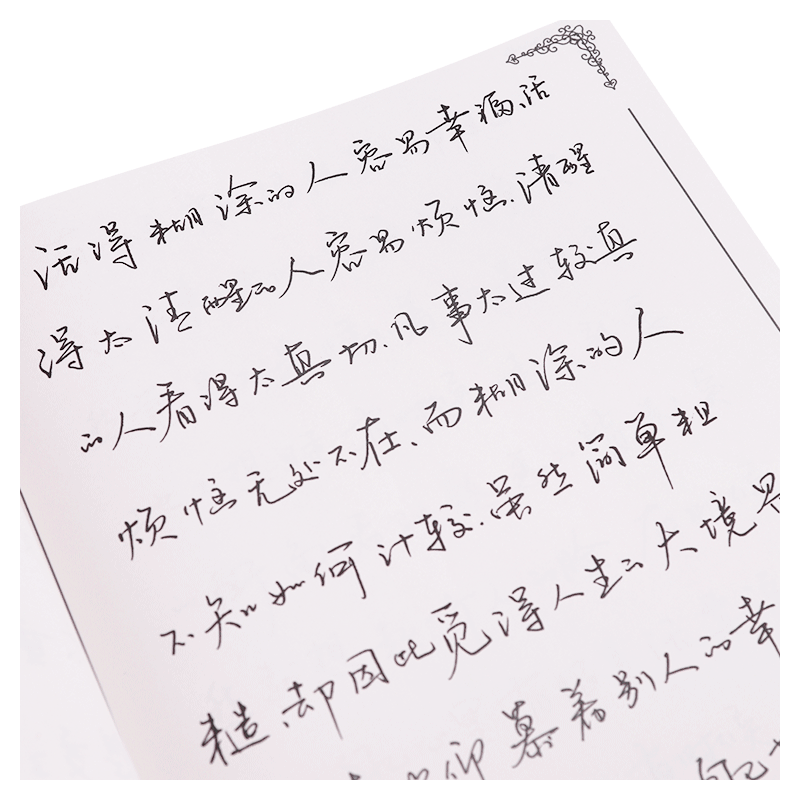 活得糊涂的人容易幸福、活
得太清醒的人容易烦恼.清醒
的人看得太真切.凡事太过较真
烦恼无处不在、而糊涂的人
不知如何计较.虽然简单粗
糙、却因此觅得人生的大境界
仰慕着别人的幸